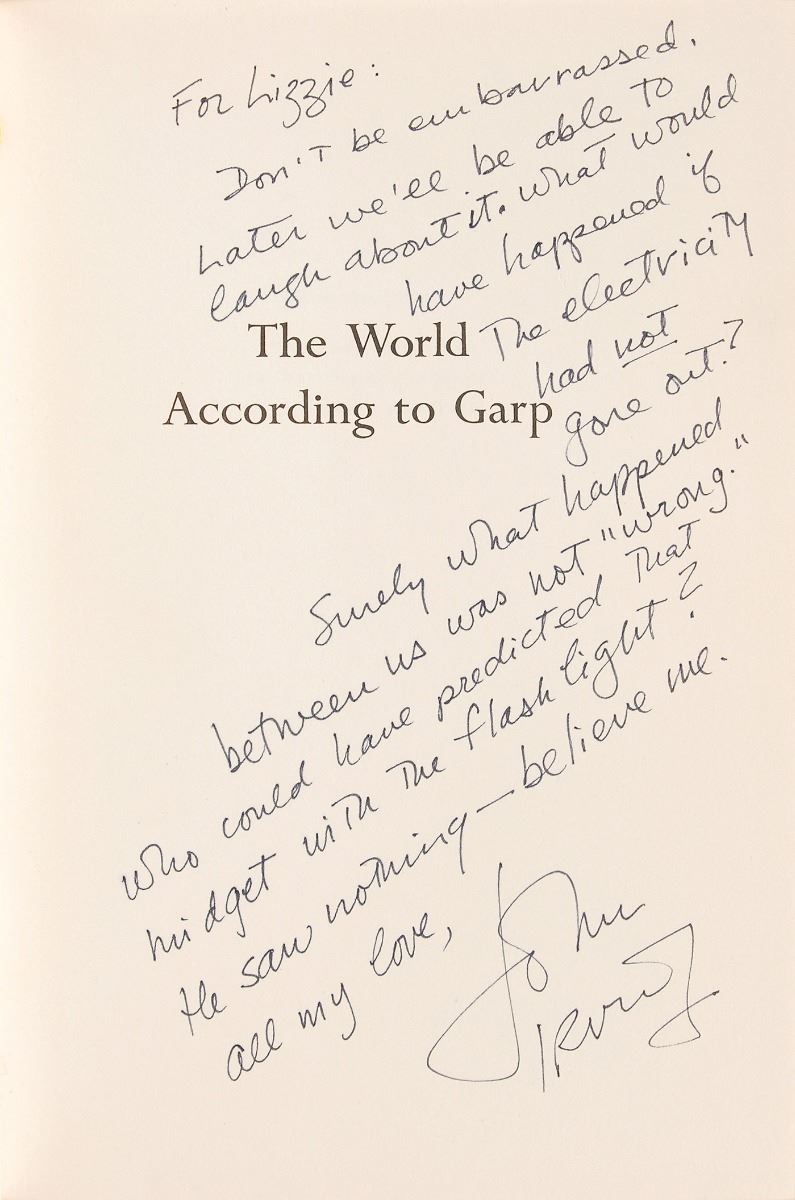 For Lizzie:
Don't be embarrassed.
Later we'll be able to
laugh about it. What would
have happened if
The World
the electricity
had not
According to Garp
gone out?
Surely what happened
between us was not "wrong."
Who could have predicted that
midget with the flashlight?
He saw nothing—believe me.
All my love,
John
Irving